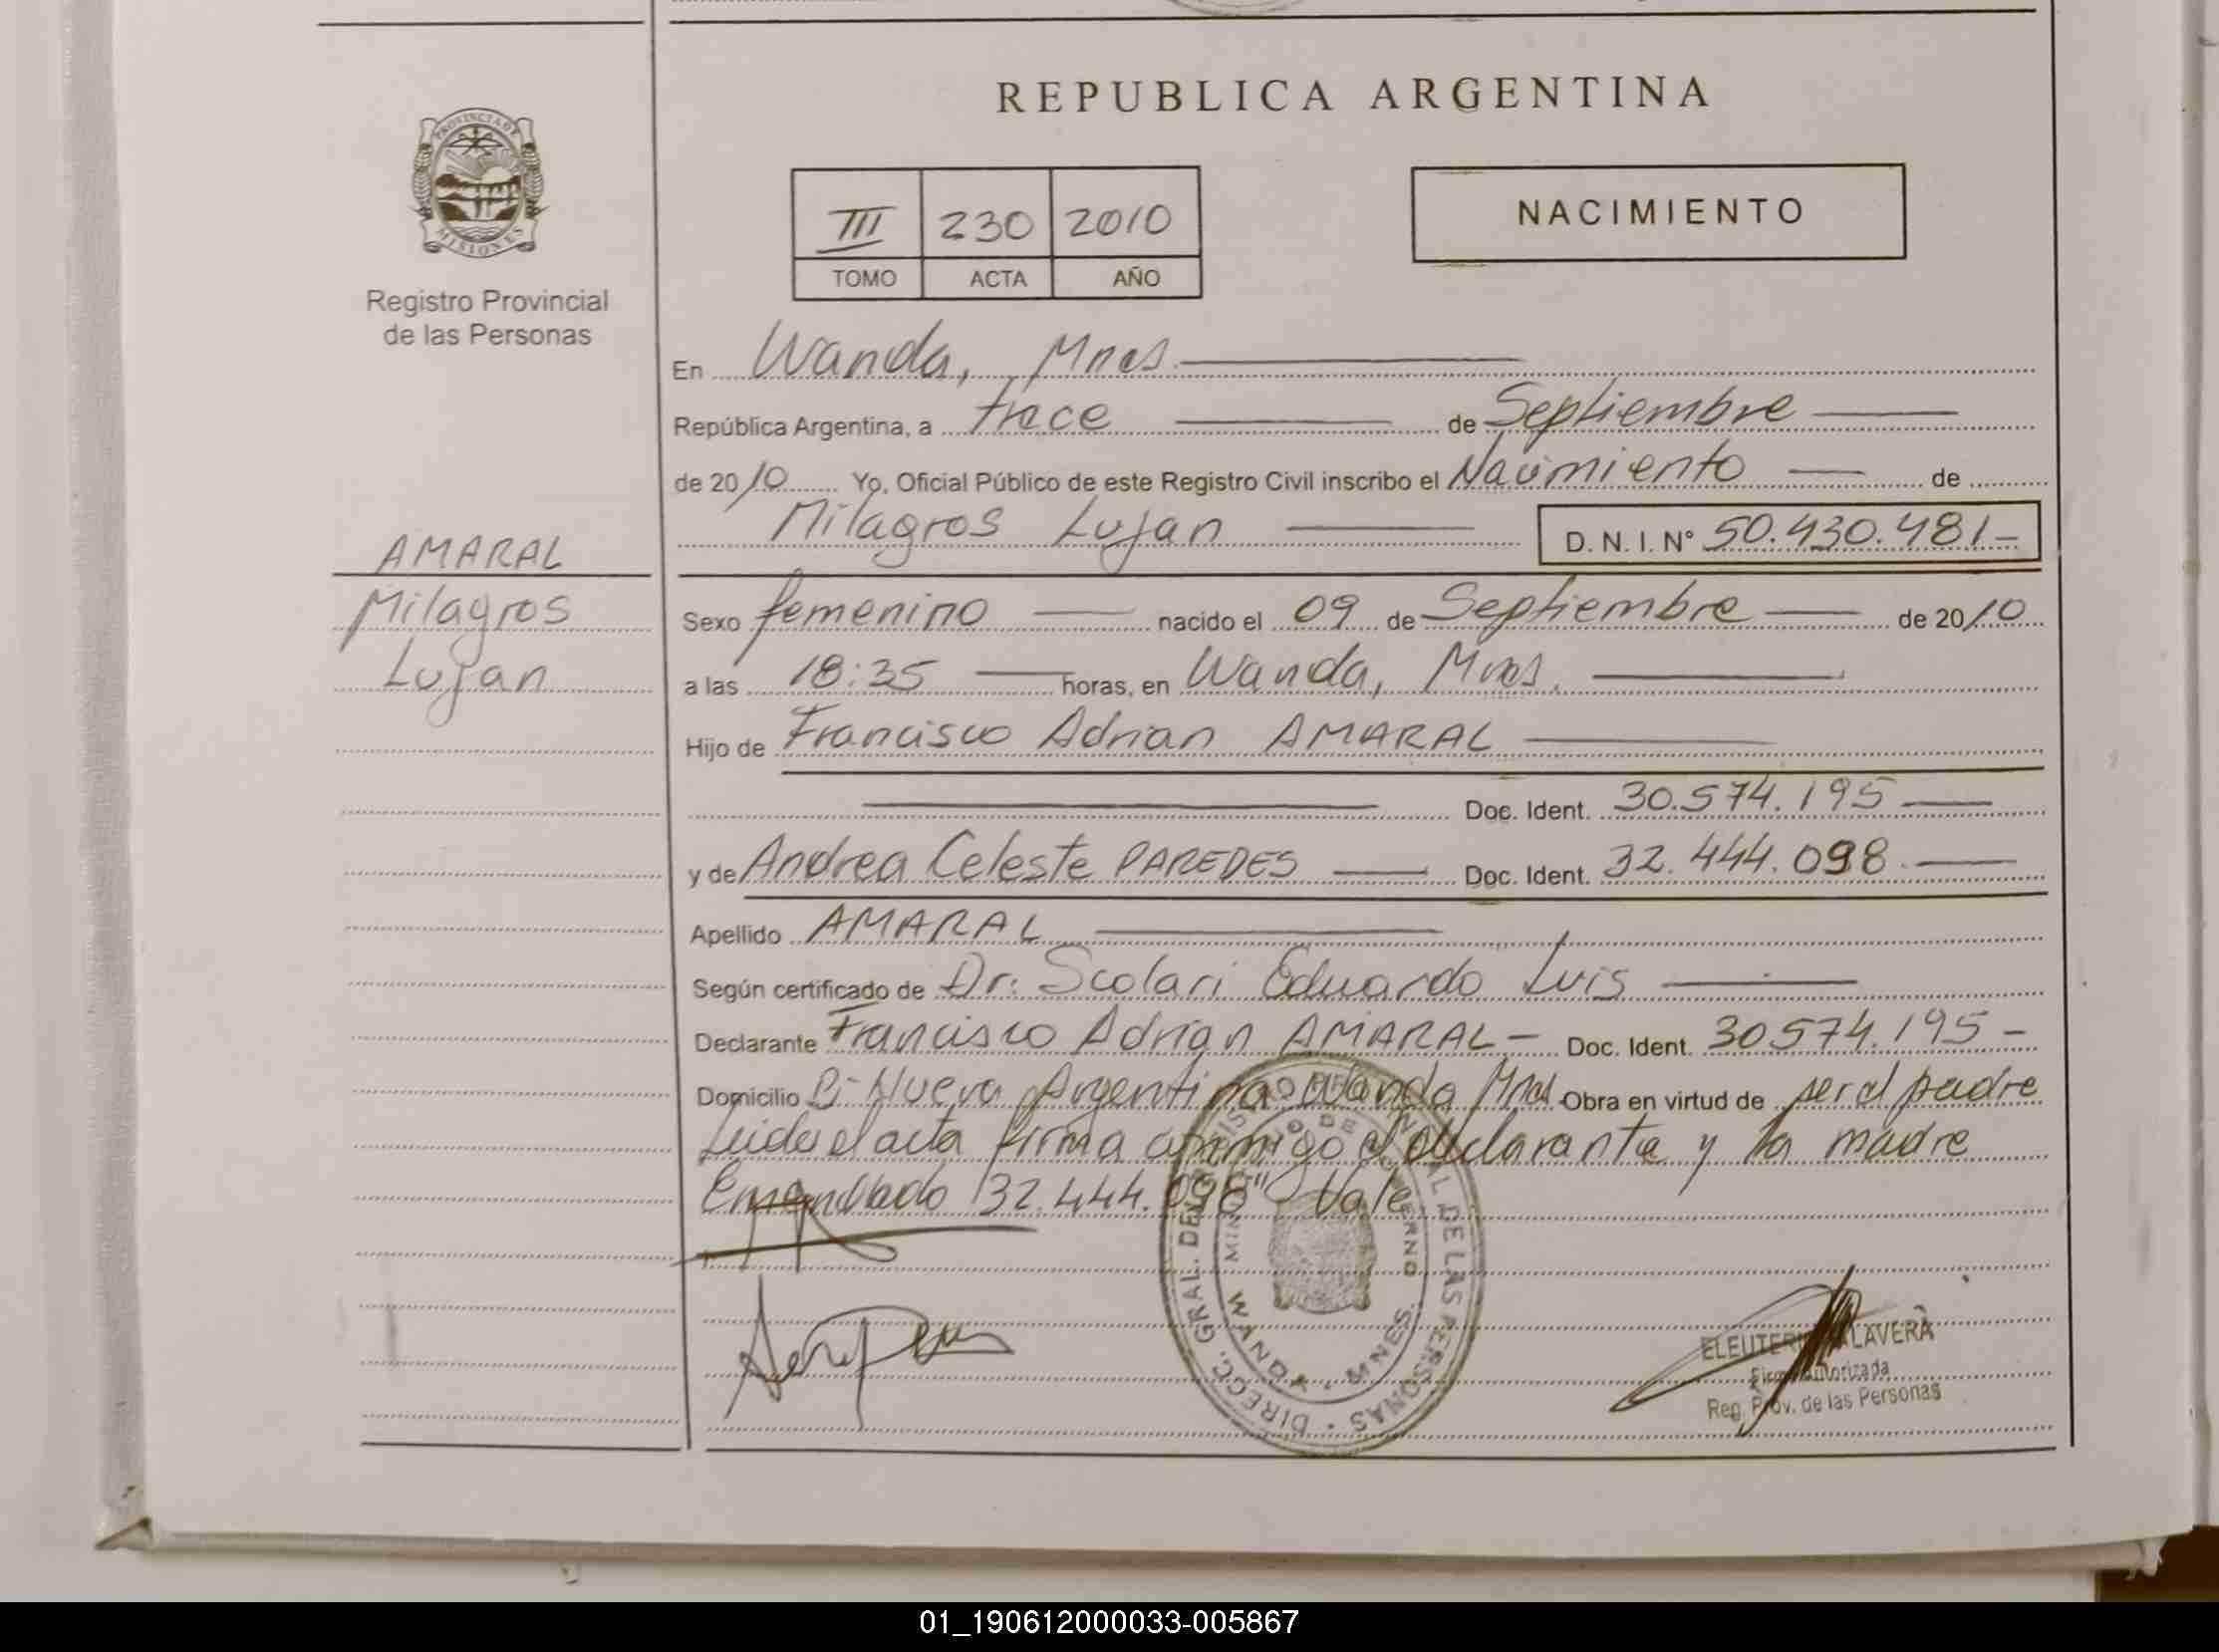 REPUBLICA ARGENTINA
PROVINCIA DE
MISIONES
Registro Provincial
de las Personas
III 230 2010
TOMO ACTA AÑO
NACIMIENTO
En Wanda, Mnes.
República Argentina, a trece de Septiembre
de 2010 Yo, Oficial Público de este Registro Civil inscribo el Nacimiento de
Milagros Lujan D.N.I. N° 50.430.481
AMARAL
Milagros
Lujan
Sexo femenino nacido el 09 de Septiembre de 2010
a las 18:35 horas, en Wanda, Mnes.
Hijo de Francisco Adrian AMARAL
Doc. Ident. 30.574.195
y de Andrea Celeste PAREDES Doc. Ident. 32.444.098
Apellido AMARAL
Según certificado de Dr. Scolari Eduardo Luis
Declarante Francisco Adrian AMARAL Doc. Ident. 30574.195
Domicilio B- Nueva Argentina Wanda Mnes Obra en virtud de ser el padre
Leida el acta firma conmigo el declarante y la madre
Enmendado "32.444.098" Vale
DIRECC. GRAL. DEL REGISTRO PROVINCIAL DE LAS PERSONAS
MINISTERIO DE GOBIERNO
WANDA - MNES.
ELEUTERIO TALAVERA
Firma Autorizada
Reg. Prov. de las Personas
01_190612000033-005867